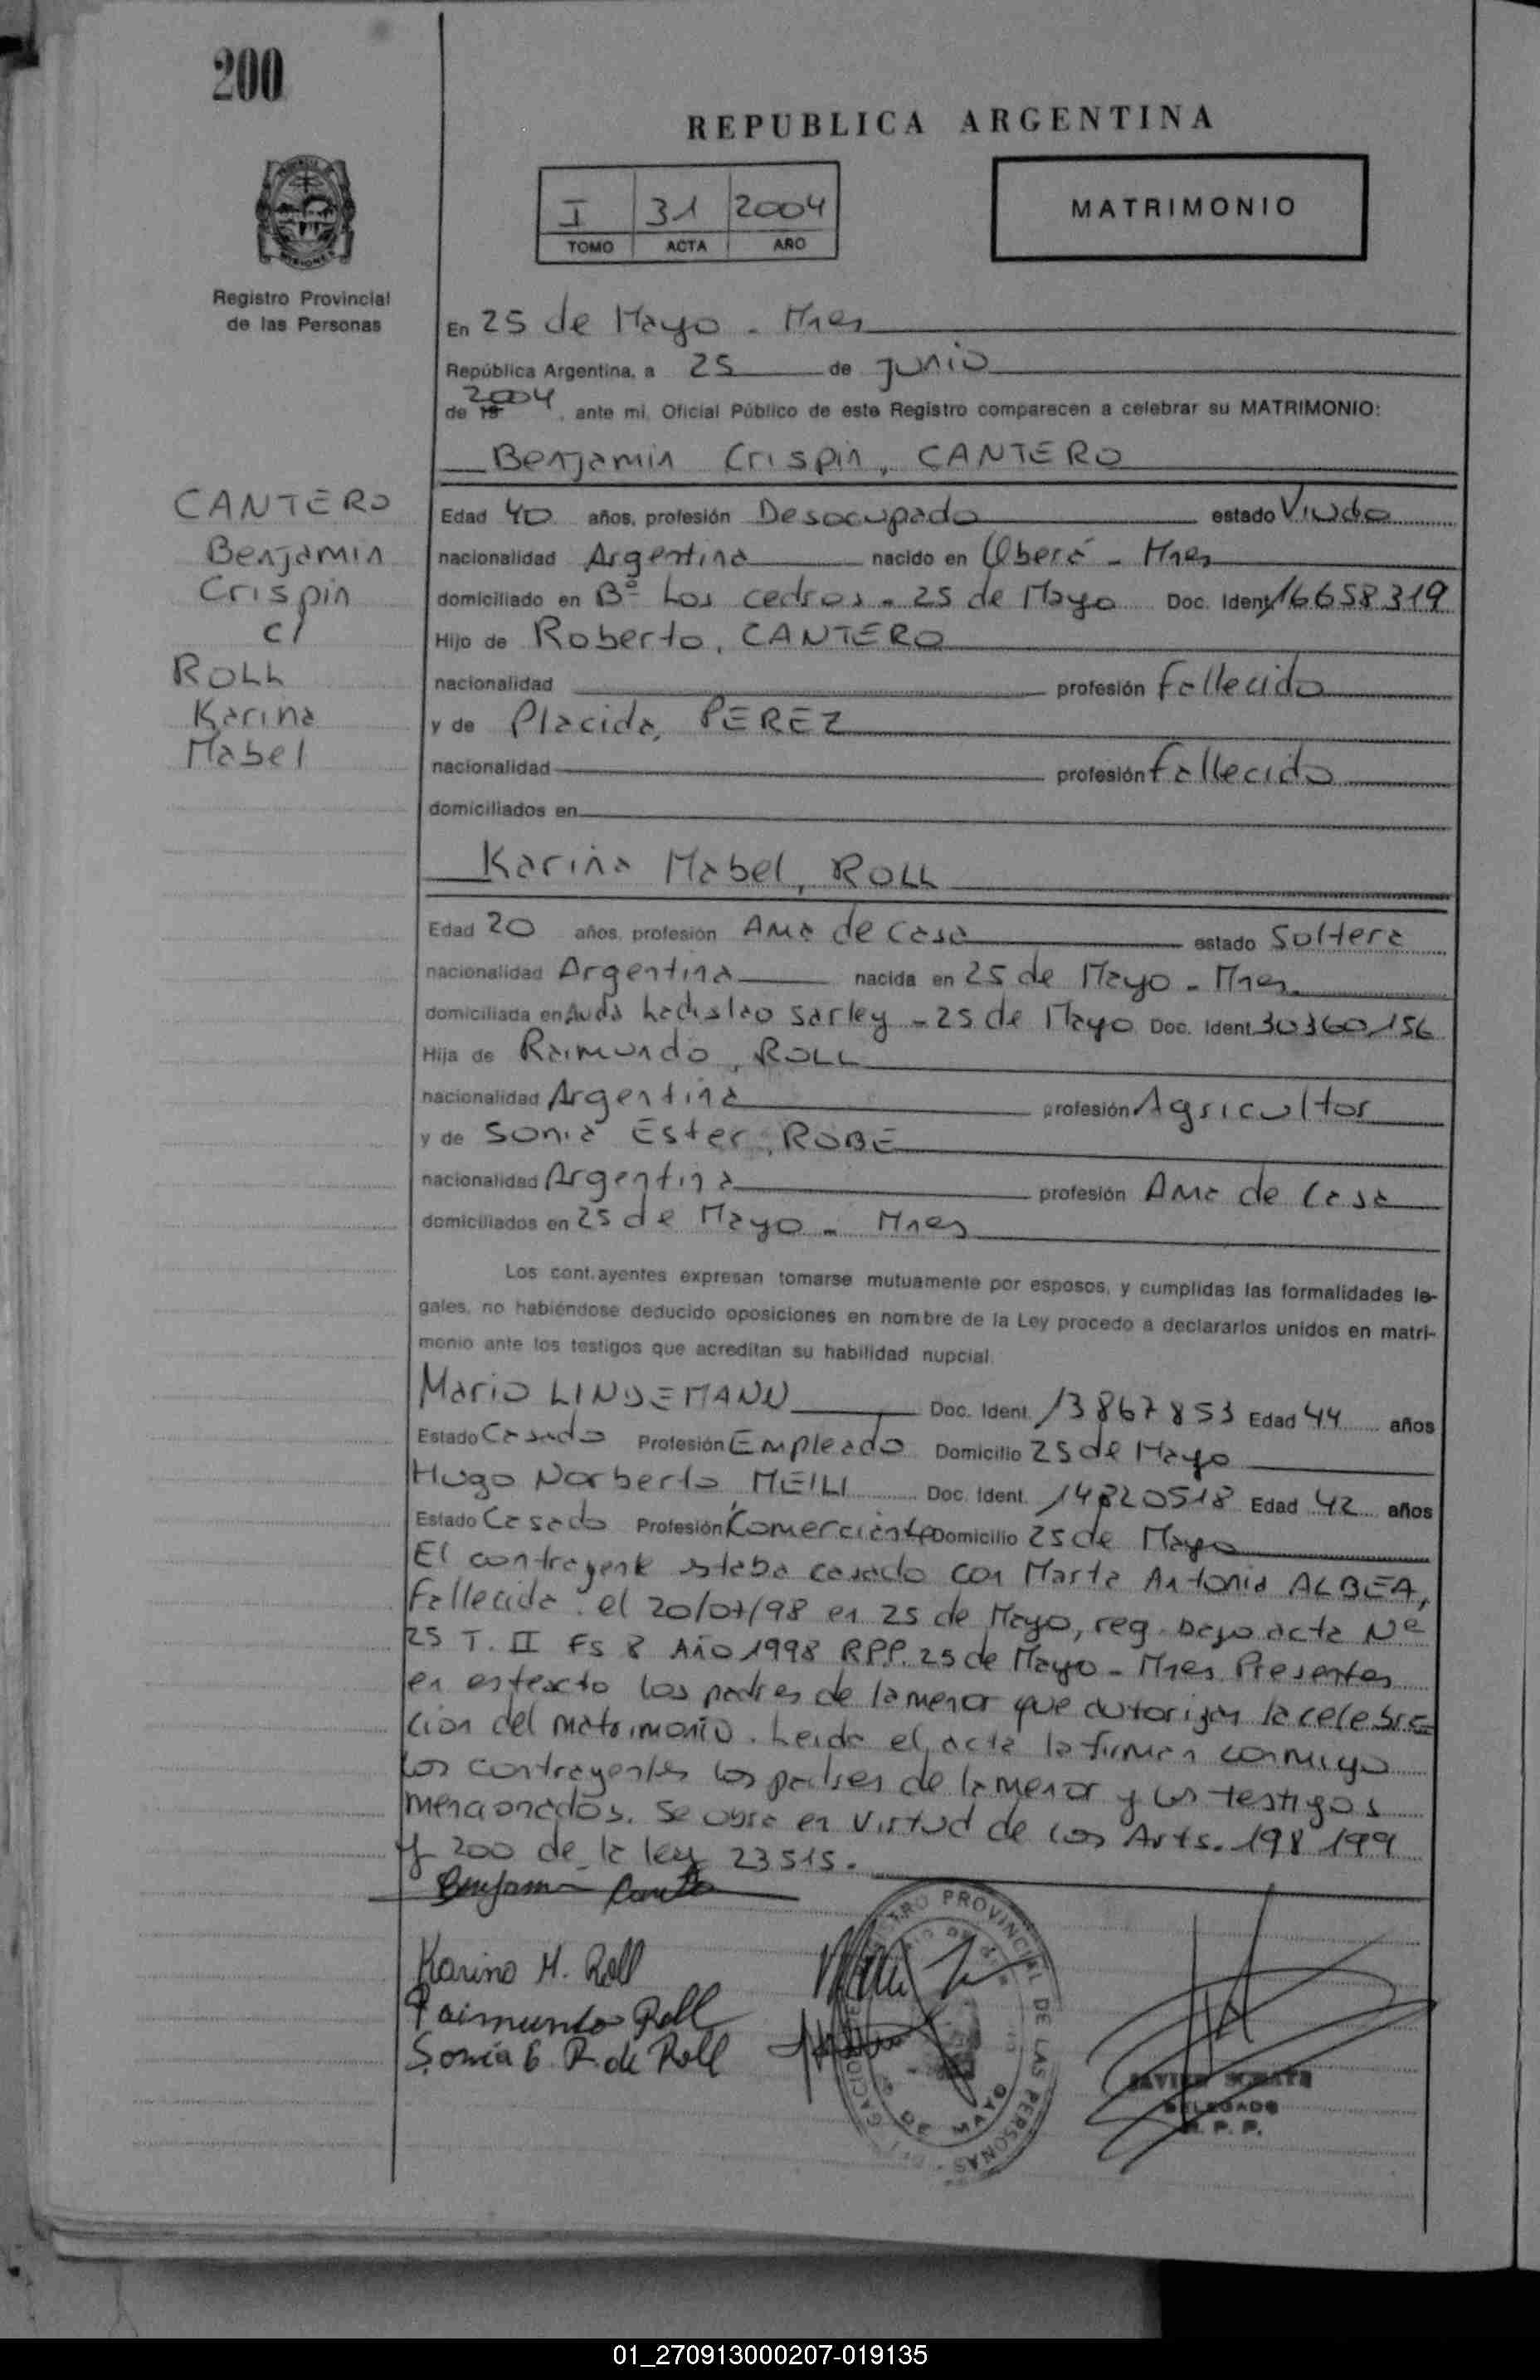 200
REPUBLICA ARGENTINA
I 31 2004
TOMO ACTA AÑO
MATRIMONIO
Registro Provincial
de las Personas
En 25 de Mayo - Mnes
República Argentina, a 25 de junio
de 19 2004, ante mi, Oficial Público de este Registro comparecen a celebrar su MATRIMONIO:
Benjamin Crispin, CANTERO
CANTERO
Benjamin
Crispin
c/
ROLL
Karina
Mabel
Edad 40 años, profesión Desocupado estado Viudo
nacionalidad Argentina nacido en Oberá - Mnes
domiciliado en Bº Los cedros - 25 de Mayo Doc. Ident. 16658319
Hijo de Roberto, CANTERO
nacionalidad profesión fallecido
y de Placida, PEREZ
nacionalidad profesión fallecida
domiciliados en
Karina Mabel, ROLL
Edad 20 años, profesión Ama de casa estado Soltera
nacionalidad Argentina nacida en 25 de Mayo - Mnes
domiciliada en Avda Ladislao Sarley - 25 de Mayo Doc. Ident. 30360156
Hija de Raimundo, ROLL
nacionalidad Argentina profesión Agricultor
y de Sonia Ester, ROBE
nacionalidad Argentina profesión Ama de Casa
domiciliados en 25 de Mayo - Mnes
Los cont.ayentes expresan tomarse mutuamente por esposos, y cumplidas las formalidades le-
gales, no habiéndose deducido oposiciones en nombre de la Ley procedo a declararlos unidos en matri-
monio ante los testigos que acreditan su habilidad nupcial.
Mario LINDEMANN Doc. Ident. 13867853 Edad 44 años
Estado Casado Profesión Empleado Domicilio 25 de Mayo
Hugo Norberto, MEILI Doc. Ident. 14820518 Edad 42 años
Estado Casado Profesión Comerciante Domicilio 25 de Mayo
El contrayente estaba casado con Marta Antonia ALBEA,
Fallecida el 20/07/98 en 25 de Mayo, reg. bajo acta Nº
25 T. II Fs 8 Año 1998 RPP. 25 de Mayo - Mnes Presentes
en este acto los padres de la menor que autorizan la celebra=
cion del matrimonio. Leida el acta la firman conmigo
los contrayentes los padres de la menor y los testigos
mencionados. Se obra en virtud de los Arts. 198 199
y 200 de la ley 23515.
Benjamin Cantero
Karina M. Roll
Raimundo Roll
Sonia E. R. de Roll
REGISTRO PROVINCIAL DE LAS PERSONAS
DE MAYO
DELEGADO
R. P. P.
01_270913000207-019135